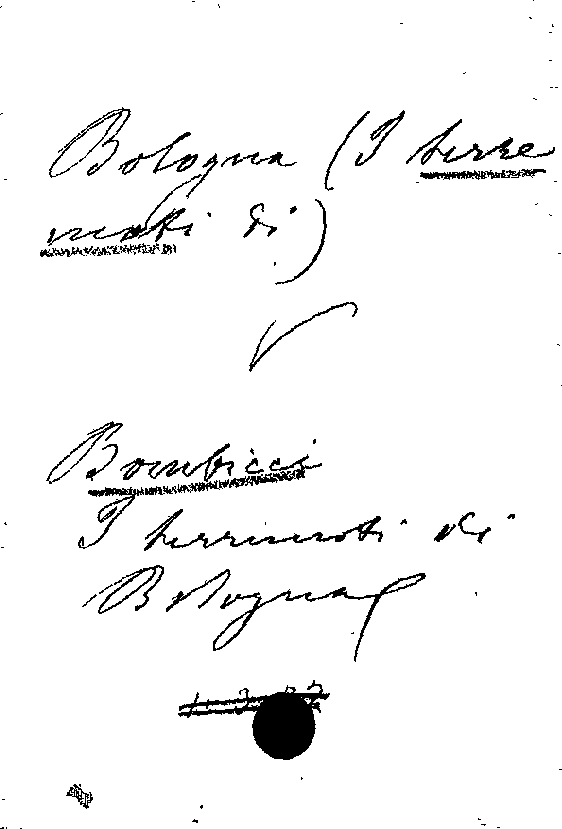 Bologna (I terre
moti di)
V
Bombicci
I terremoti di
Bologna